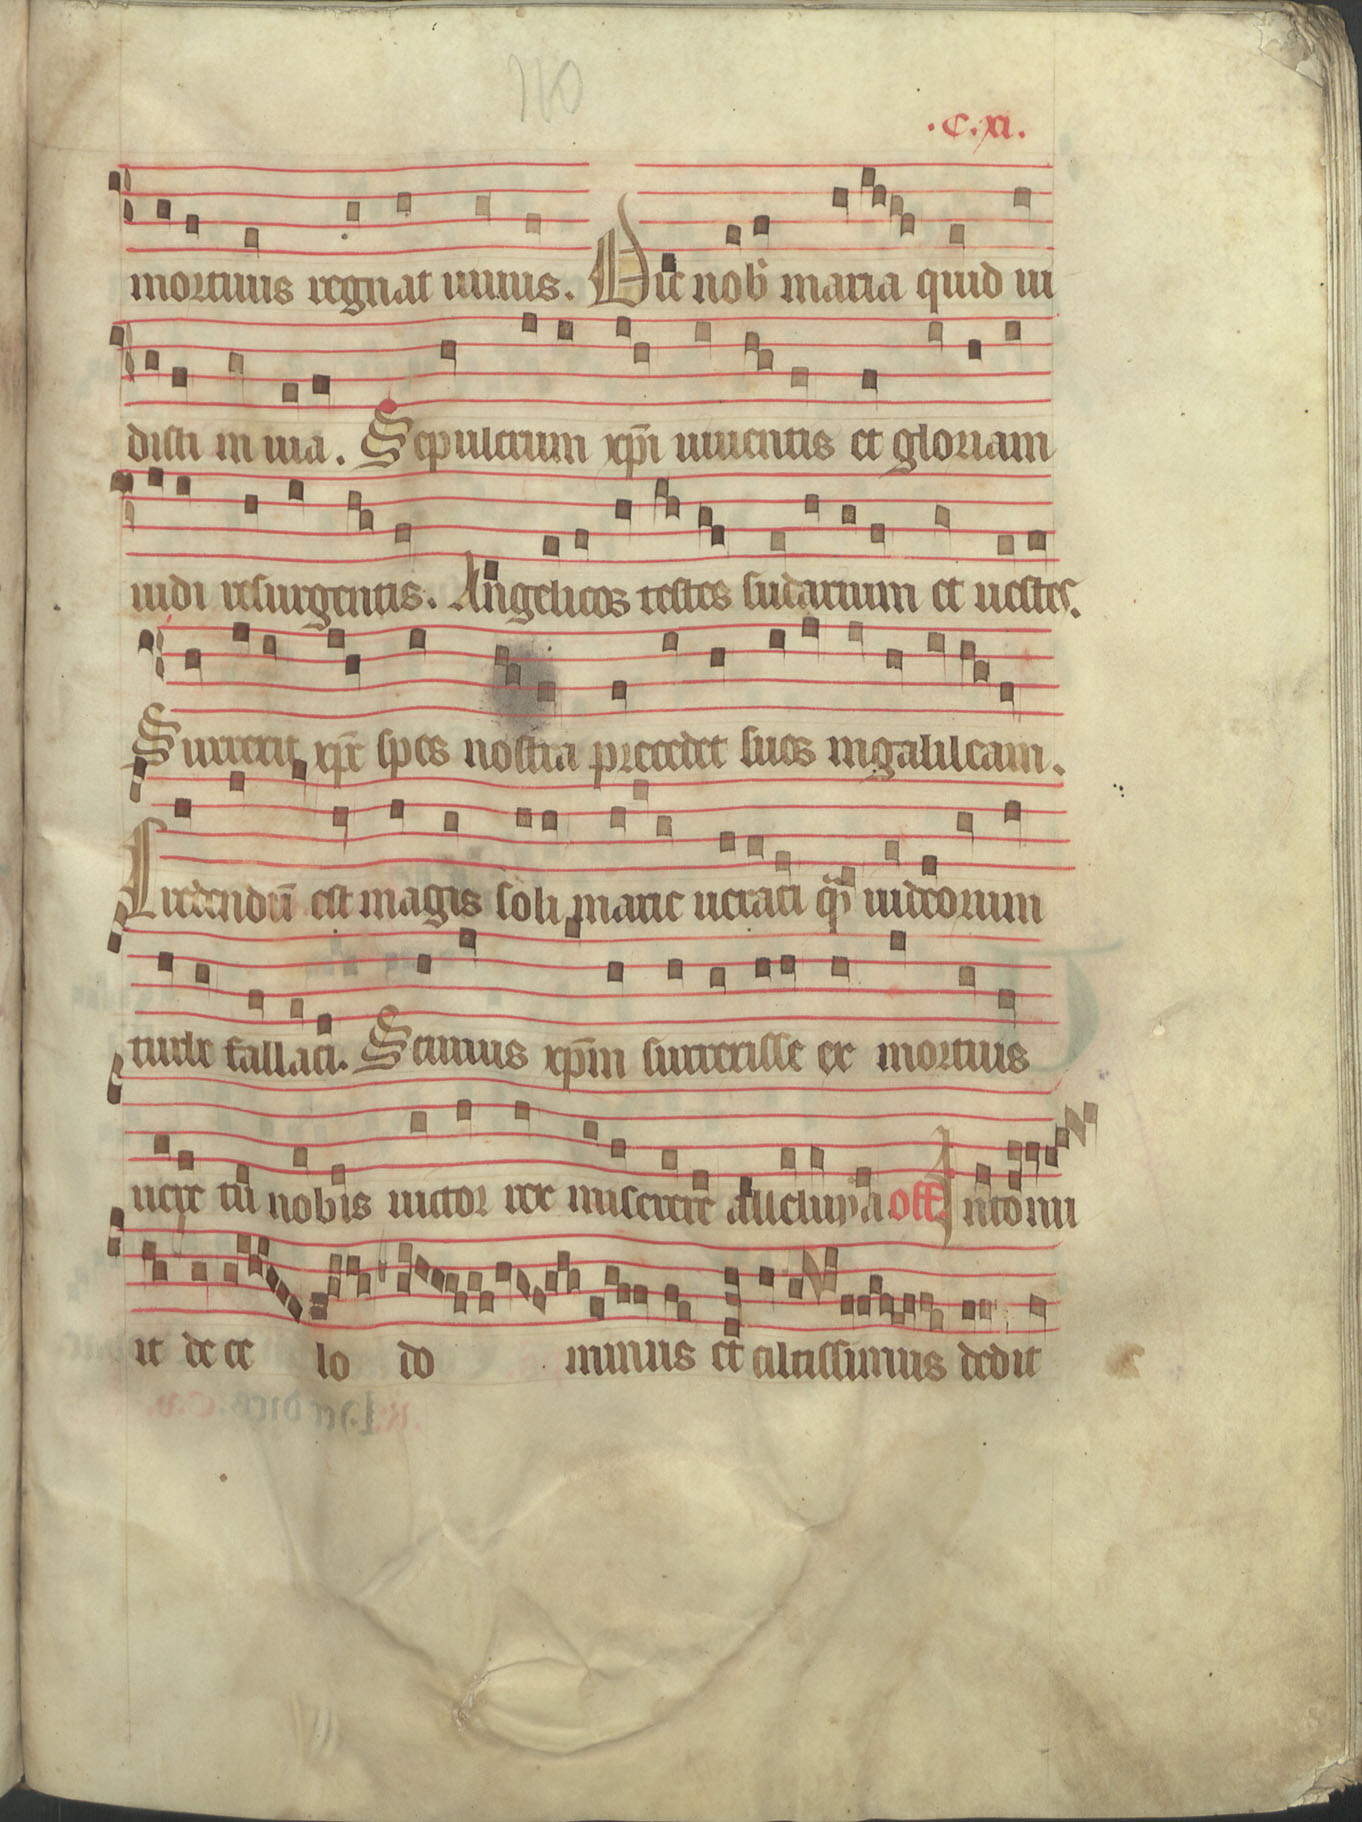 110
.C.XI.
mortuus regnat uiuus. Dic nob̄ maria quid ui
disti in uia. Sepulcrum xp̄i uiuentis et gloriam
uidi resurgentis. Angelicos testes sudarium et uestes.
Surrexit xp̄c spes nostra precedet suos in galileam.
Credendū est magis soli marie ueraci q̄ȝ iudeorum
turbe fallaci. Scimus xp̄m surrexisse ex mortuis
uere tū nobis uictor rex miserere alleluya off̄. Intonu
it de ce lo do minus et altissimus dedit